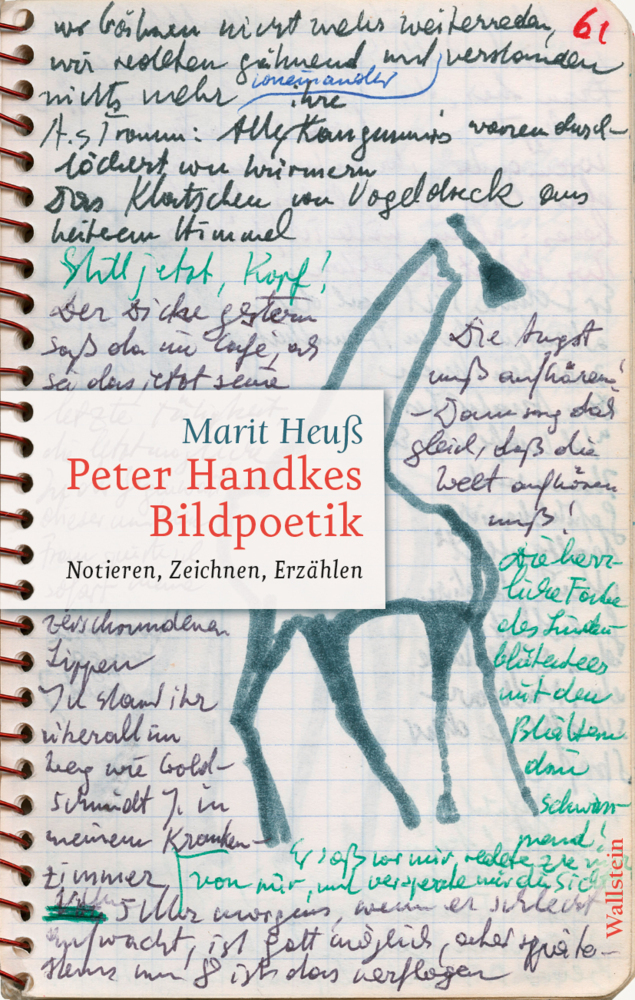 61
wir gähnen nicht mehr weiterreden,
wir redeten gähnend und verstanden
voneinander
nichts mehr
ihre
A.s Traum: Alle Kängurus waren durch-
löchert von Würmern
Das Klatschen von Vogeldreck aus
heiterem Himmel
Still jetzt, Kopf!
Der Dicke gestern
saß da im Cafe, als
sei das jetzt seine
letzte
Die Angst
muß aufhören!
– Dann sag das
gleich, daß die
Welt aufhören
muß!
Marit Heuß
Peter Handkes
Bildpoetik
Notieren, Zeichnen, Erzählen
Die herr-
liche Farbe
des Linden-
blütentees
mit den
Blättern
drin
schwim-
mend!
verschwundenen
Lippen
J. stand ihr
überall im
Weg wie Gold-
schmidt J. in
meinem Kranken-
zimmer
Er saß vor mir, redete
von mir, und versperrte mir die Sicht
5 Uhr morgens, wenn er schlecht
aufwacht, ist Gott möglich, aber späte-
stens um 8 ist das verflogen
Wallstein